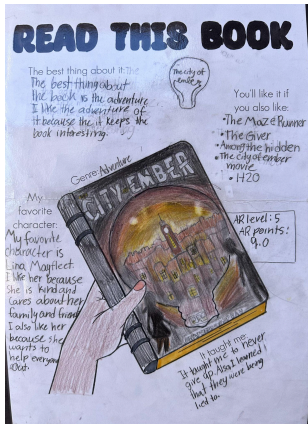 READ THIS BOOK
The best thing about it: The
The best thing about
the book is the adventure
I like the adventure of
it because the it keeps the
book interesting.
The city of
ember
You'll like it if
you also like:
• The Maze Runner
• The Giver
• Among the hidden
• The city of ember
movie
• H2O
Genre: Adventure
CITY EMBER
AR level: 5
AR points:
9.0
My
favorite
character:
My favorite
character is
Lina Mayfleet
I like her because
she is kind and
cares about her
family and friend
I also like her
because she
wants to
help everyone
out.
It taught me:
It taught me to never
give up. Also I learned
that they were being
lied to.